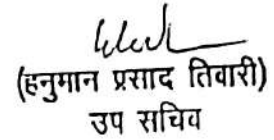 (हनुमान प्रसाद तिवारी)
उप सचिव